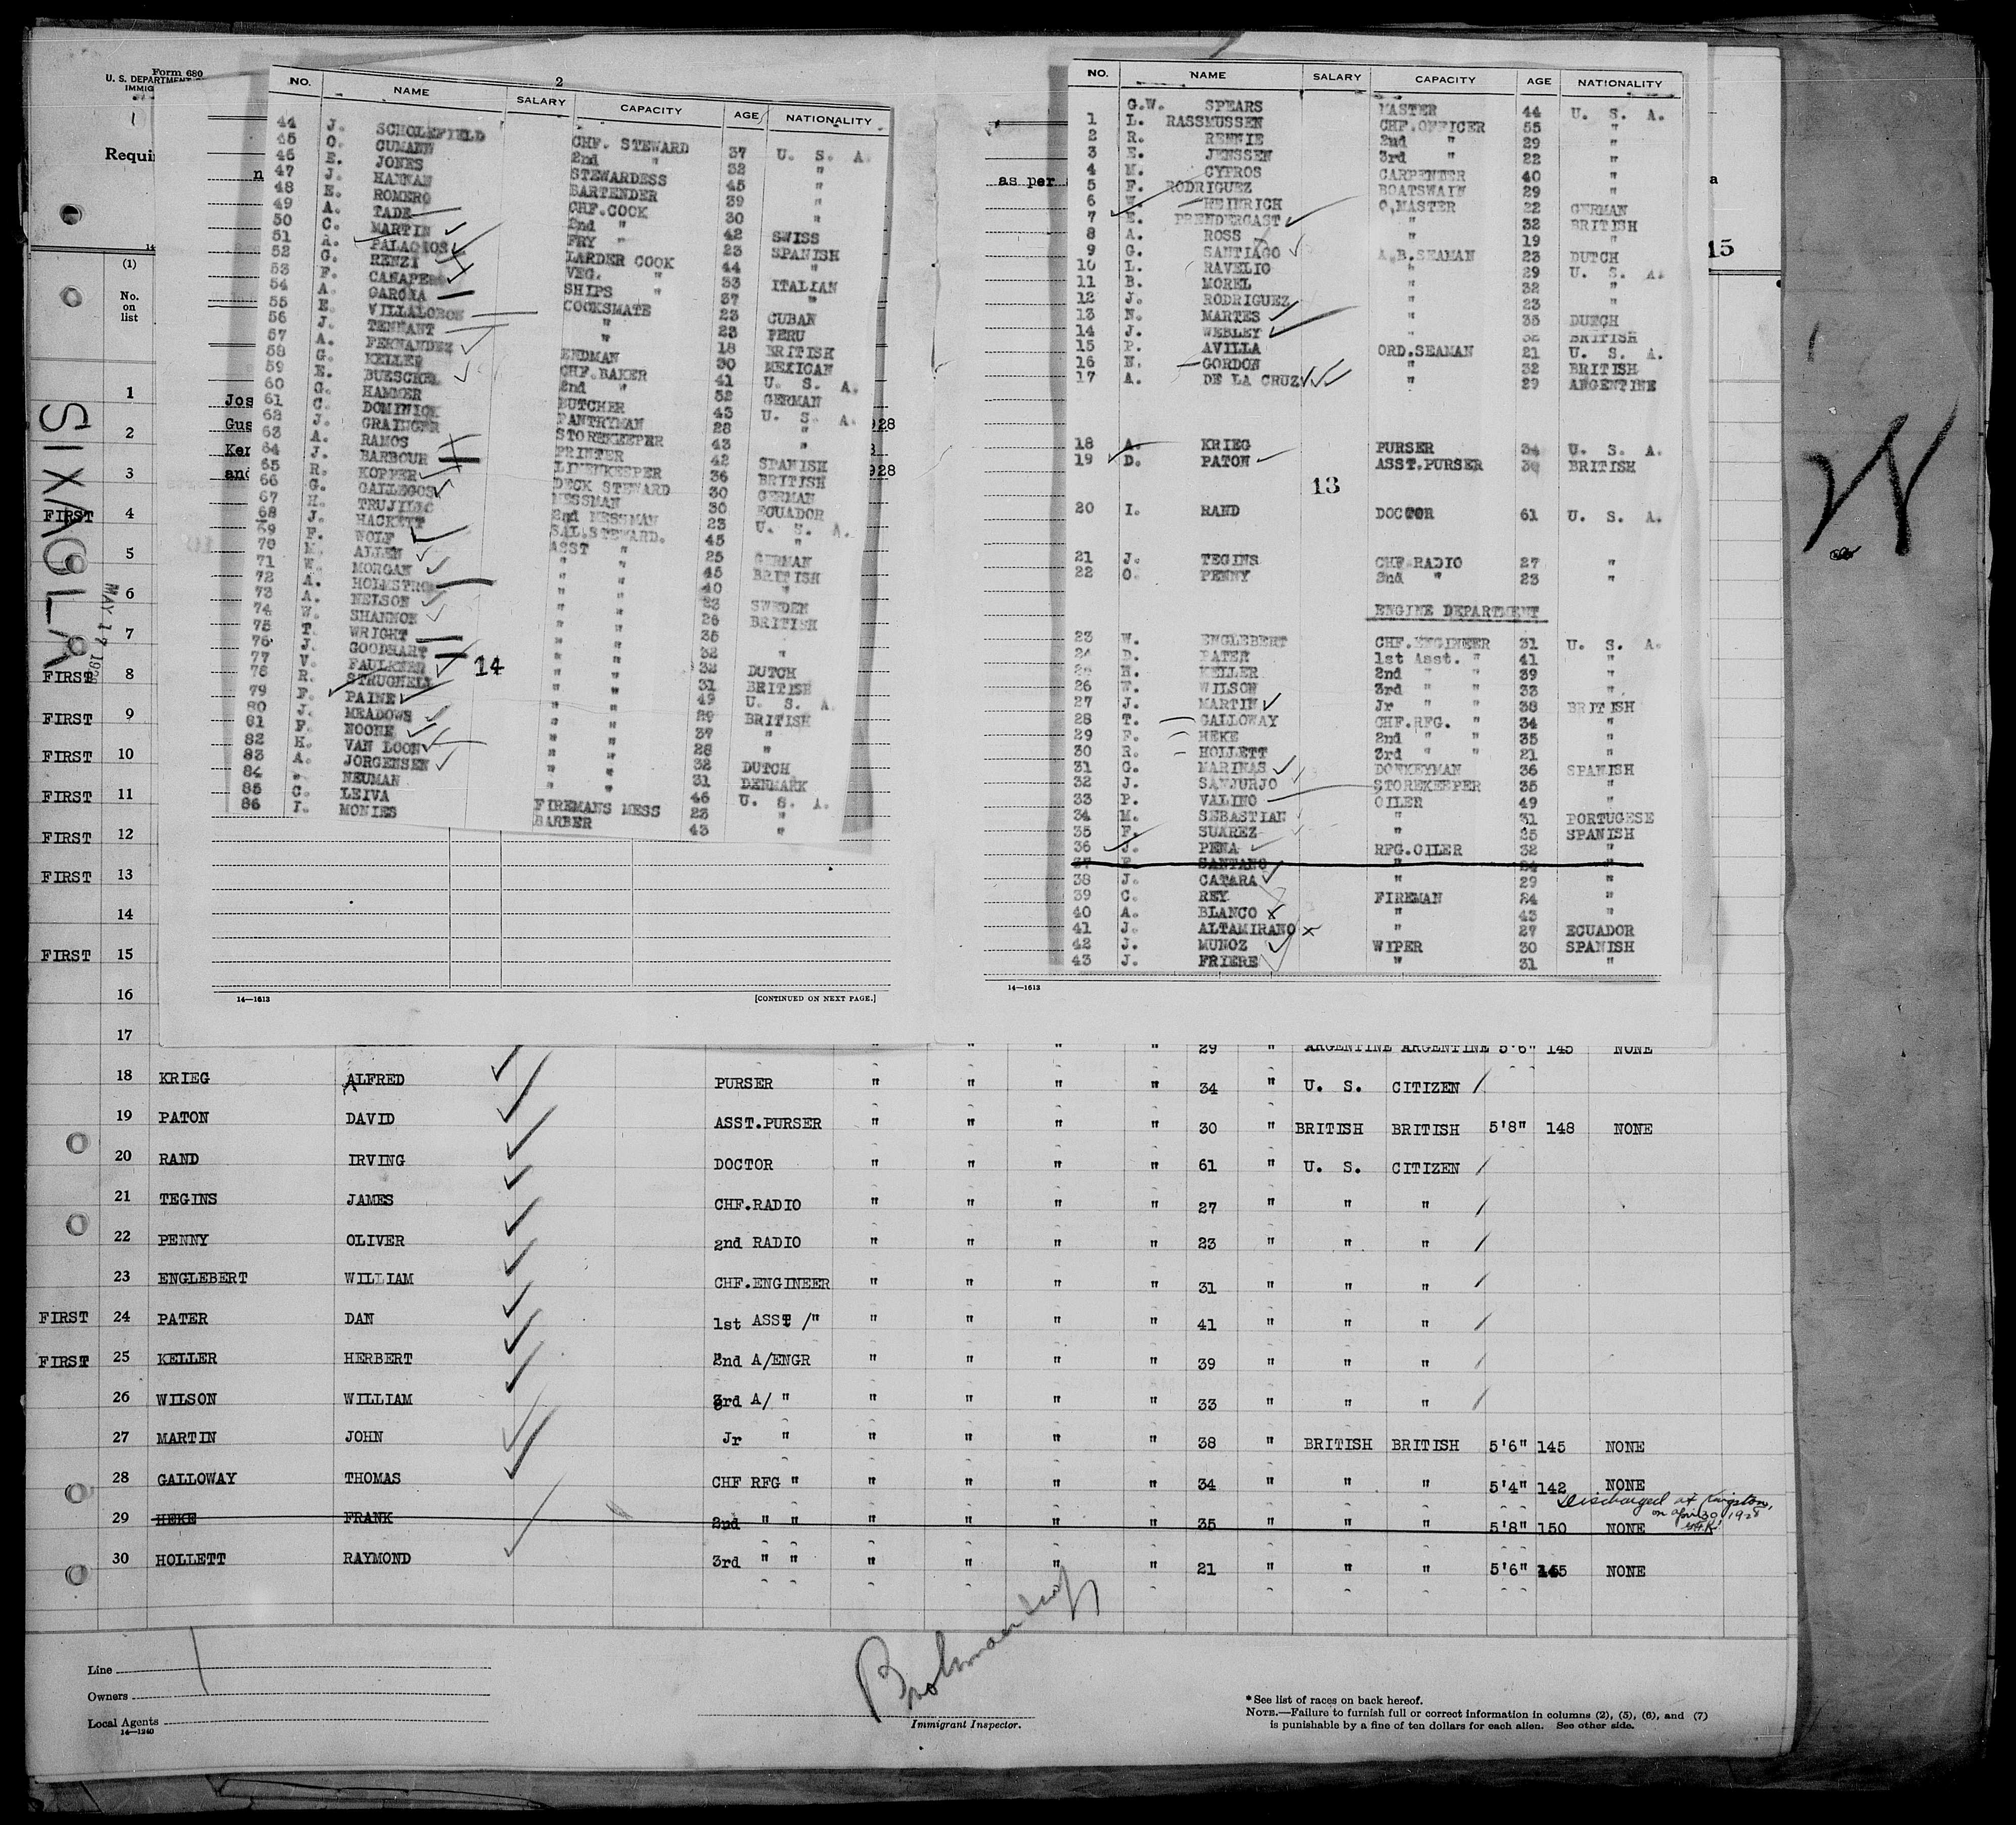 Form 680
U. S. DEPARTMENT
IMMIG
Requi
(1)
No.
on
list
SIXAOLA
MAY 17 1928
2
NO. NAME SALARY CAPACITY AGE NATIONALITY
44 J. SCHOLEFIELD CHF. STEWARD 37 U. S. A.
45 O. CUMANN 2nd " 32 "
46 E. JONES STEWARDESS 45 "
47 J. HANNAN BARTENDER 39 "
48 E. ROMERO CHF.COOK 30 "
49 A. TADE 2nd " 42 SWISS
50 C. MARTIN FRY " 23 SPANISH
51 A. PALACIOS LARDER COOK 44 "
52 G. RENZI VEG. " 33 ITALIAN
53 F. CANAPERO SHIPS " 37 "
54 A. GARCIA COOKSMATE 23 CUBAN
55 E. VILLALOBOS " 23 PERU
56 J. TENNANT " 18 BRITISH
57 A. FERNANDEZ ENDMAN 30 MEXICAN
58 G. KELLER CHF.BAKER 41 U. S. A.
59 E. BUESCHEL 2nd " 52 GERMAN
60 G. HAMMER BUTCHER 43 U. S. A.
61 C. DOMINICK PANTRYMAN 28 "
62 J. GRAINGER STOREKEEPER 43 "
63 A. RAMOS PRINTER 42 SPANISH
64 J. BARBOUR LINENKEEPER 36 BRITISH
65 R. KOPPER DECK STEWARD 30 GERMAN
66 G. GALLEGOS MESSMAN 30 ECUADOR
67 H. TRUJILLO 2nd MESSMAN 23 U. S. A.
68 J. HACKETT SAL.STEWARD. 45 "
69 F. WOLF ASST " 25 GERMAN
70 M. ALLEN " " 45 BRITISH
71 W. MORGAN " " 40 "
72 A. HOLMSTROM " " 23 SWEDEN
73 A. NELSON " " 28 BRITISH
74 W. SHANNON " " 35
75 T. WRIGHT " " 32 "
76 J. GOODHART " " 32 DUTCH
77 V. FAULKNER 14 " " 31 BRITISH
78 R. STRUGNELL " " 49 U. S. A.
79 F. PAINE " " 29 BRITISH
80 J. MEADOWS " " 37 "
81 F. NOONE " " 28 "
82 H. VAN LOON " " 32 DUTCH
83 A. JORGENSEN " " 31 DENMARK
84 " NEUMAN " " 46 U. S. A.
85 C. LEIVA FIREMANS MESS 23 "
86 I. MONIES BARBER 43 "
14—1613 [CONTINUED ON NEXT PAGE.]
as per
15
NO. NAME SALARY CAPACITY AGE NATIONALITY
G.W. SPEARS MASTER 44 U. S. A.
1 L. RASSMUSSEN CHF.OFFICER 55 "
2 R. RENNIE 2nd " 29 "
3 E. JENSSEN 3rd " 22 "
4 M. CYPROS CARPENTER 40 "
5 F. RODRIGUEZ BOATSWAIN 29 "
6 W. HEINRICH Q.MASTER 22 GERMAN
7 E. PRENDERGAST " 32 BRITISH
8 A. ROSS " 19 "
9 G. SANTIAGO A.B.SEAMAN 23 DUTCH
10 L. RAVELIO " 29 U. S. A.
11 B. MOREL " 32 "
12 J. RODRIGUEZ " 23 "
13 N. MARTES " 35 DUTCH
14 J. WEBLEY " 32 BRITISH
15 P. AVILLA ORD.SEAMAN 21 U. S. A.
16 N. GORDON " 32 BRITISH
17 A. DE LA CRUZ " 29 ARGENTINE
18 A. KRIEG PURSER 34 U. S. A.
19 D. PATON ASST.PURSER 30 BRITISH
13
20 I. RAND DOCTOR 61 U. S. A.
21 J. TEGINS CHF.RADIO 27 "
22 O. PENNY 2nd " 23 "
ENGINE DEPARTMENT
23 W. ENGLEBERT CHF.ENGINEER 31 U. S. A.
24 D. PATER 1st Asst. " 41 "
25 H. KELLER 2nd " " 39 "
26 W. WILSON 3rd " " 33 "
27 J. MARTIN Jr " 38 BRITISH
28 T. GALLOWAY CHF.RFG. " 34 "
29 F. HEKE 2nd " " 35 "
30 R. HOLLETT 3rd " " 21 "
31 G. MARINAS DONKEYMAN 36 SPANISH
32 J. SANJURJO STOREKEEPER 35 "
33 P. VALINO OILER 49 "
34 M. SEBASTIAN " 31 PORTUGESE
35 F. SUAREZ " 25 SPANISH
36 J. PENA RFG.OILER 32 "
37 F. SANTANO " 24 "
38 J. CATARA " 29 "
39 C. REY FIREMAN 24 "
40 A. BLANCO " 43 "
41 J. ALTAMIRANO " 27 ECUADOR
42 J. MUNOZ WIPER 30 SPANISH
43 J. FRIERE " 31 "
14—1613
1 Jos
2 Gus 928
Ker
3 and 928
FIRST 4
5
6
7
FIRST 8
FIRST 9
FIRST 10
FIRST 11
FIRST 12
FIRST 13
14
FIRST 15
16
17 " " " " 29 " ARGENTINE ARGENTINE 5'6" 145 NONE
18 KRIEG ALFRED PURSER " " " " 34 " U. S. CITIZEN
19 PATON DAVID ASST.PURSER " " " " 30 " BRITISH BRITISH 5'8" 148 NONE
20 RAND IRVING DOCTOR " " " " 61 " U. S. CITIZEN
21 TEGINS JAMES CHF.RADIO " " " " 27 " " "
22 PENNY OLIVER 2nd RADIO " " " " 23 " " "
23 ENGLEBERT WILLIAM CHF.ENGINEER " " " " 31 " " "
FIRST 24 PATER DAN 1st ASST /" " " " " 41 " " "
FIRST 25 KELLER HERBERT 2nd A/ENGR " " " " 39 " " "
26 WILSON WILLIAM 3rd A/ " " " " " 33 " " "
27 MARTIN JOHN Jr " " " " " 38 " BRITISH BRITISH 5'6" 145 NONE
28 GALLOWAY THOMAS CHF RFG " " " " " 34 " " " 5'4" 142 NONE
Discharged at Kingston,
on april 30 1928
29 HEKE FRANK 2nd " " " " " " 35 " " " 5'8" 150 NONE
30 HOLLETT RAYMOND 3rd " " " " " " 21 " " " 5'6" 145 NONE
Line
Owners
Local Agents
14—1240
Immigrant Inspector.
* See list of races on back hereof.
NOTE.—Failure to furnish full or correct information in columns (2), (5), (6), and (7)
is punishable by a fine of ten dollars for each alien. See other side.